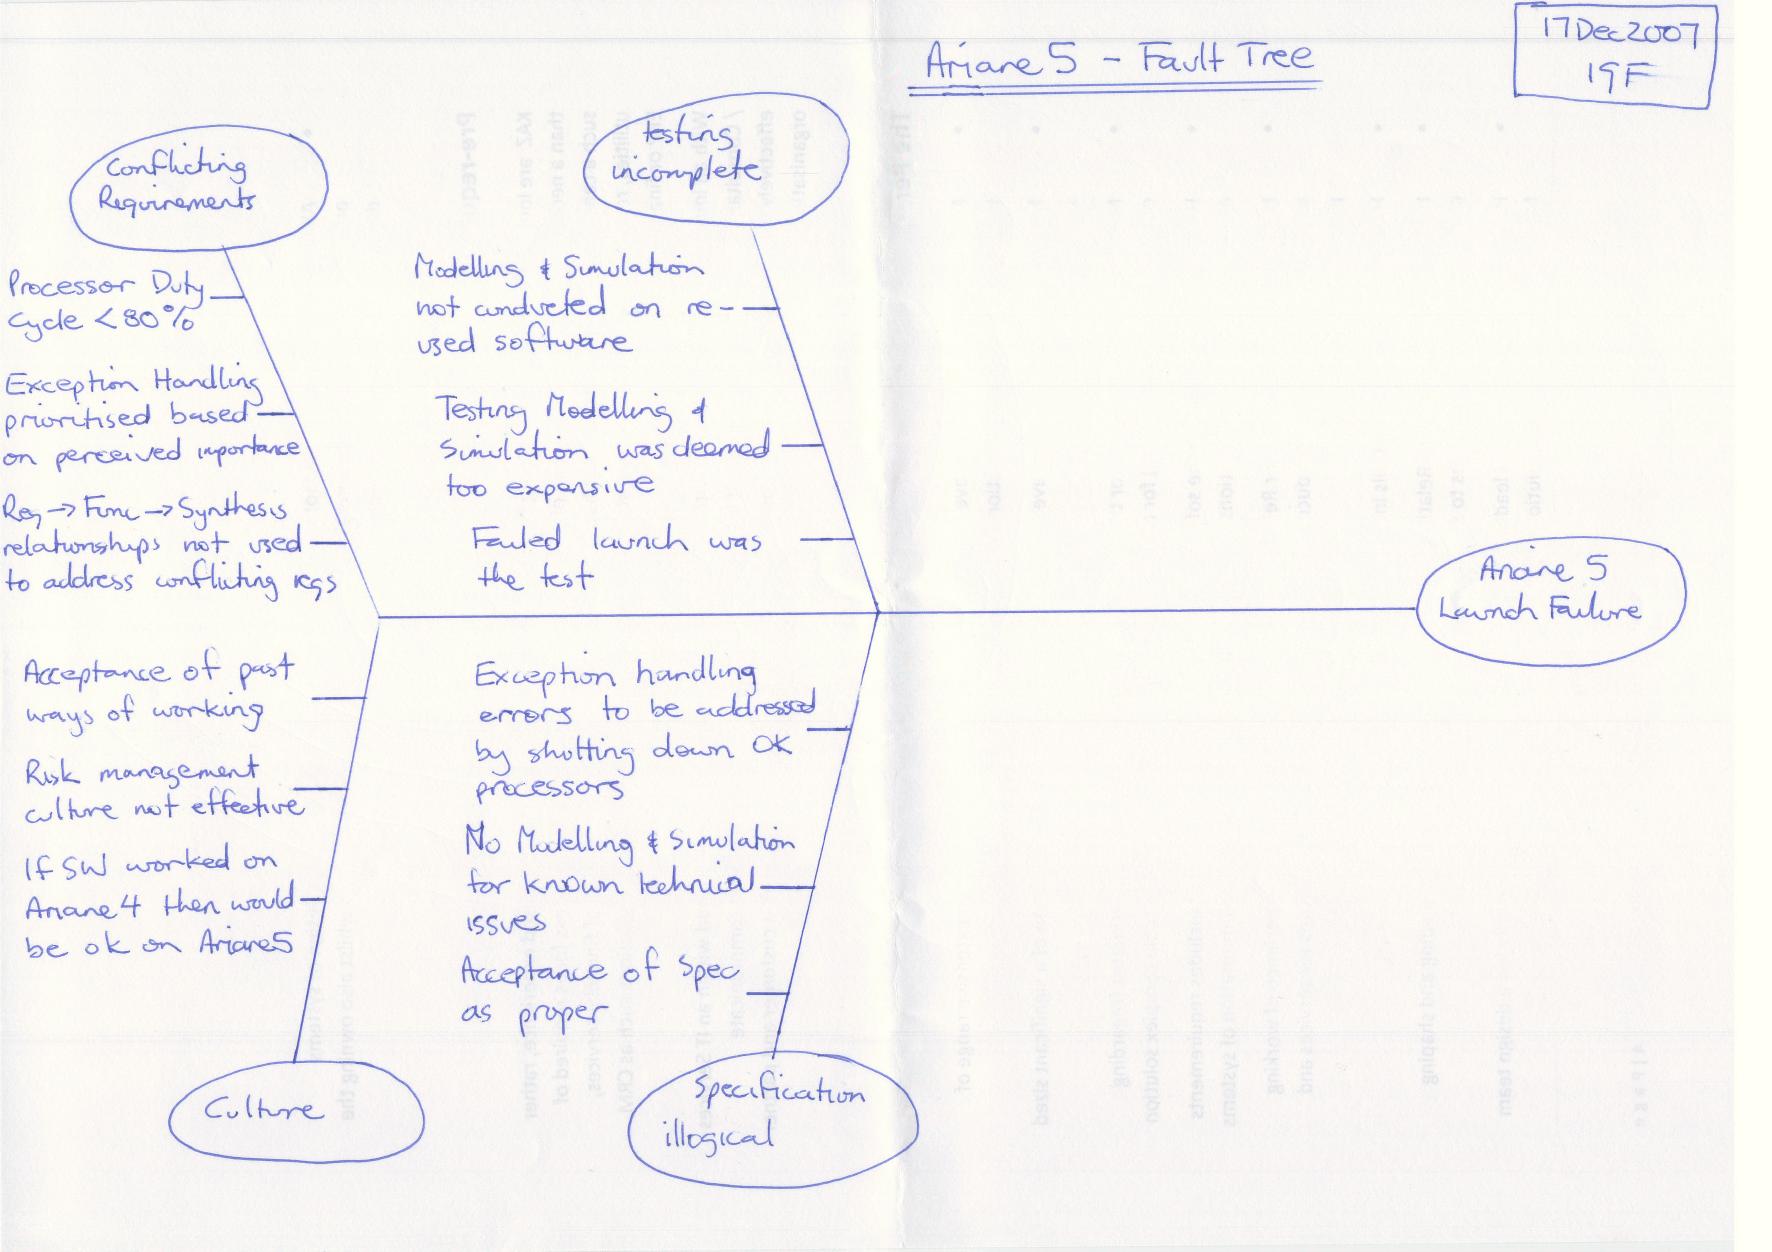 17Dec2007
19F
Ariane 5 - Fault Tree
Conflicting
Requirements
Processor Duty
Cycle < 80%
Exception Handling
prioritised based
on perceived importance
Req → Func → Synthesis
relationships not used
to address conflicting reqs
testing
incomplete
Modelling & Simulation
not conducted on re-
used software
Testing Modelling &
Simulation was deemed
too expensive
Failed launch was
the test
Ariane 5
Launch Failure
Acceptance of past
ways of working
Risk management
culture not effective
If SW worked on
Ariane 4 then would
be ok on Ariane5
Culture
Exception handling
errors to be addressed
by shutting down OK
processors
No Modelling & Simulation
for known technical
issues
Acceptance of Spec
as proper
Specification
illogical